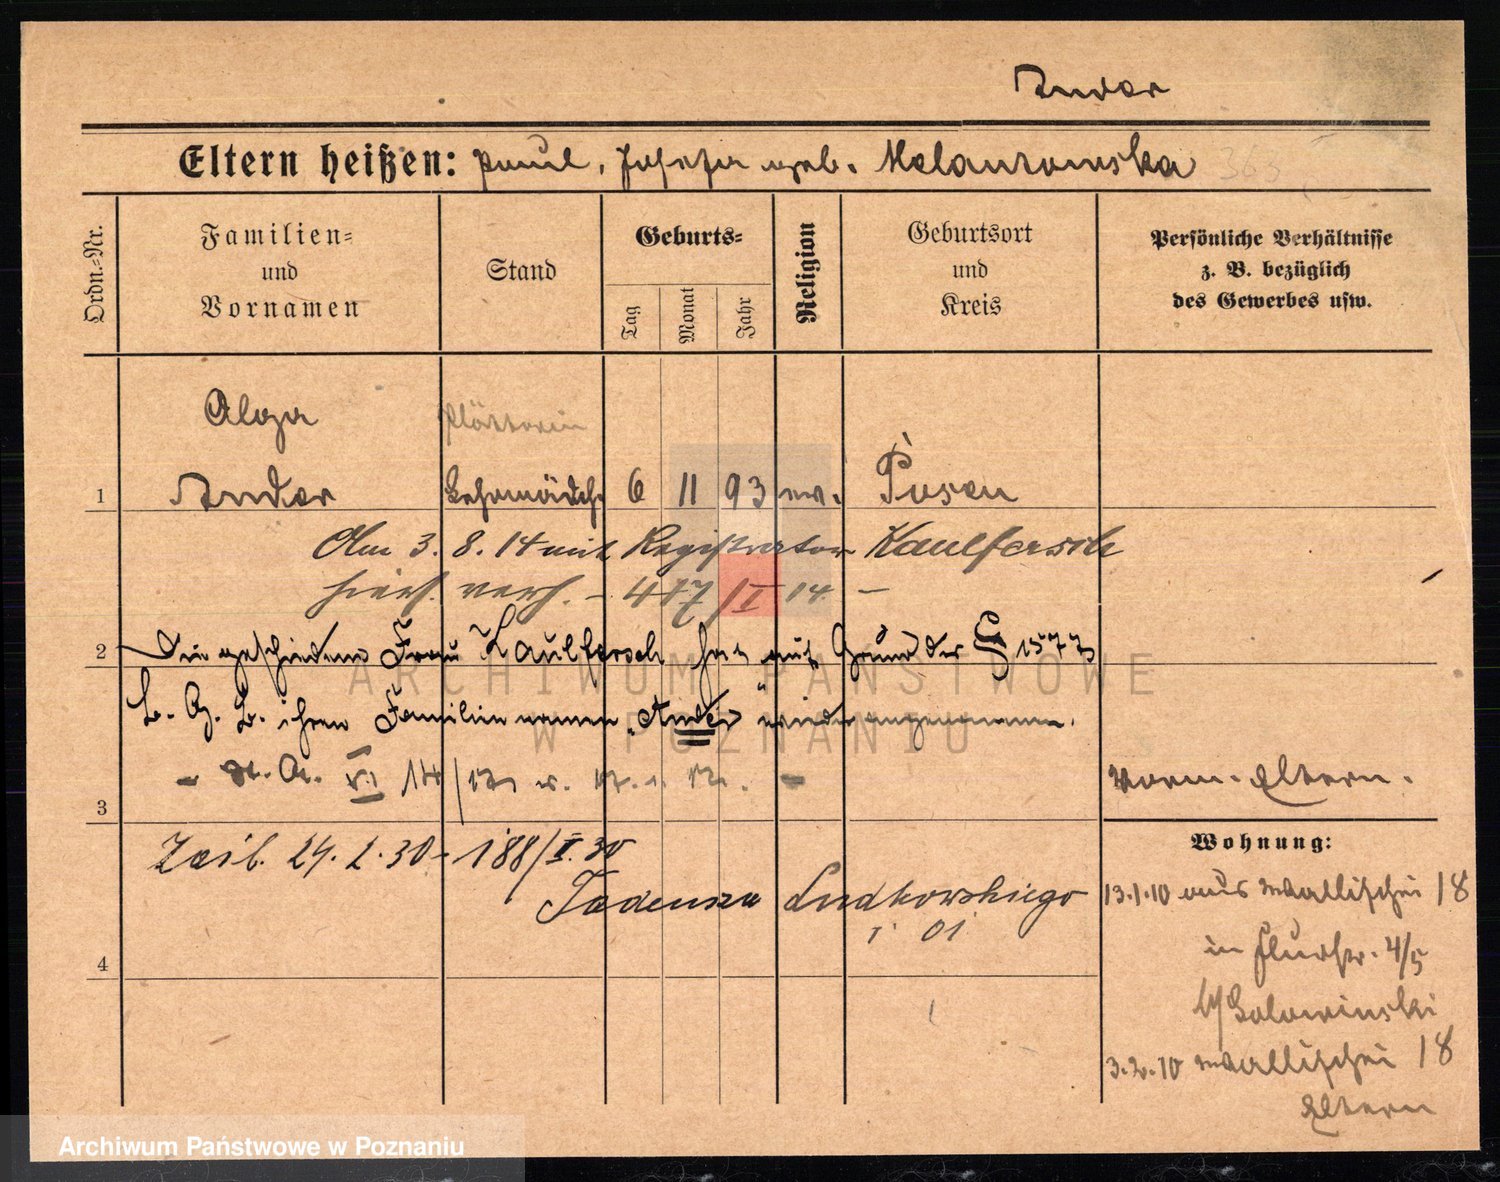 Ander
Eltern heißen: Paul, Josefa geb. Malanowska
Ordn.=Nr.
Familien=
und
Vornamen
Stand
Geburts=
Tag
Monat
Jahr
Religion
Geburtsort
und
Kreis
Persönliche Verhältnisse
z. B. bezüglich
des Gewerbes usw.
Olga
Plätterin
1 Ander Lehrmädch. 6 11 93 ev. Posen
Am 3. 8. 14 mit Registrator Kaulfersch
hiers. verh. - 417/I 14. -
2 Die geschiedene Frau Kaulfersch hat auf Grund der § 1577
B. G. B. ihren Familiennamen "Ander" wieder angenommen.
- St. A. VI 14/
3
Vorm. Eltern.
Wohnung:
24. 2. 30 - 188/II. 30
Tadeusza Ludkowskiego
4
13.1.10 aus Wallischei 18
in Flurstr. 4/5
b/ Golowinski
3.2.10 Wallischei 18
Eltern
ARCHIWUM PAŃSTWOWE
W POZNANIU
Archiwum Państwowe w Poznaniu